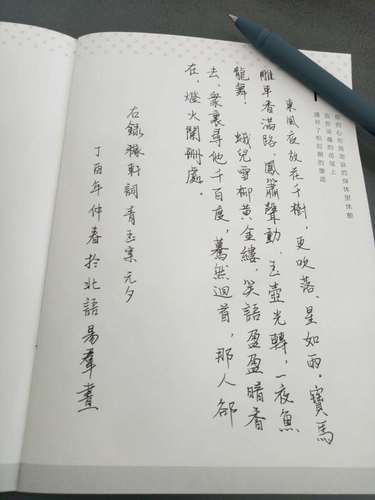 東風夜放花千樹，更吹落、星如雨。寶馬
雕車香滿路，鳳簫聲動，玉壺光轉，一夜魚
龍舞。 蛾兒雪柳黃金縷，笑語盈盈暗香
去，衆裏尋他千百度，驀然迴首，那人卻
在，燈火闌珊處。
右錄稼軒詞青玉案元夕
丁酉年仲春於北語易羣書